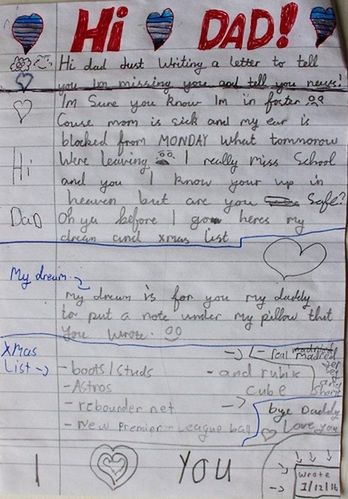 Hi DAD!
Hi dad Just Writing a letter to tell
you Im missing you and tell you news!
I'm Sure you know Im in foster
Couse mom is sick and my ear is
blocked from MONDAY What tommorow
Were leaving I really Miss School
and you I know your up in
heaven but are you Safe?
Oh ya before I go heres my
dream and xmas list
Hi
DaD
My dream
my dream is for you my daddy
to put a note under my pillow that
you wrote.
Xmas
List
- boots/studs
- Astros
- rebounder net
- New Premier-League ball
- real madrid
- and rubix
cube
bye Daddy
Love you
I YOU
Wrote
1/12/16